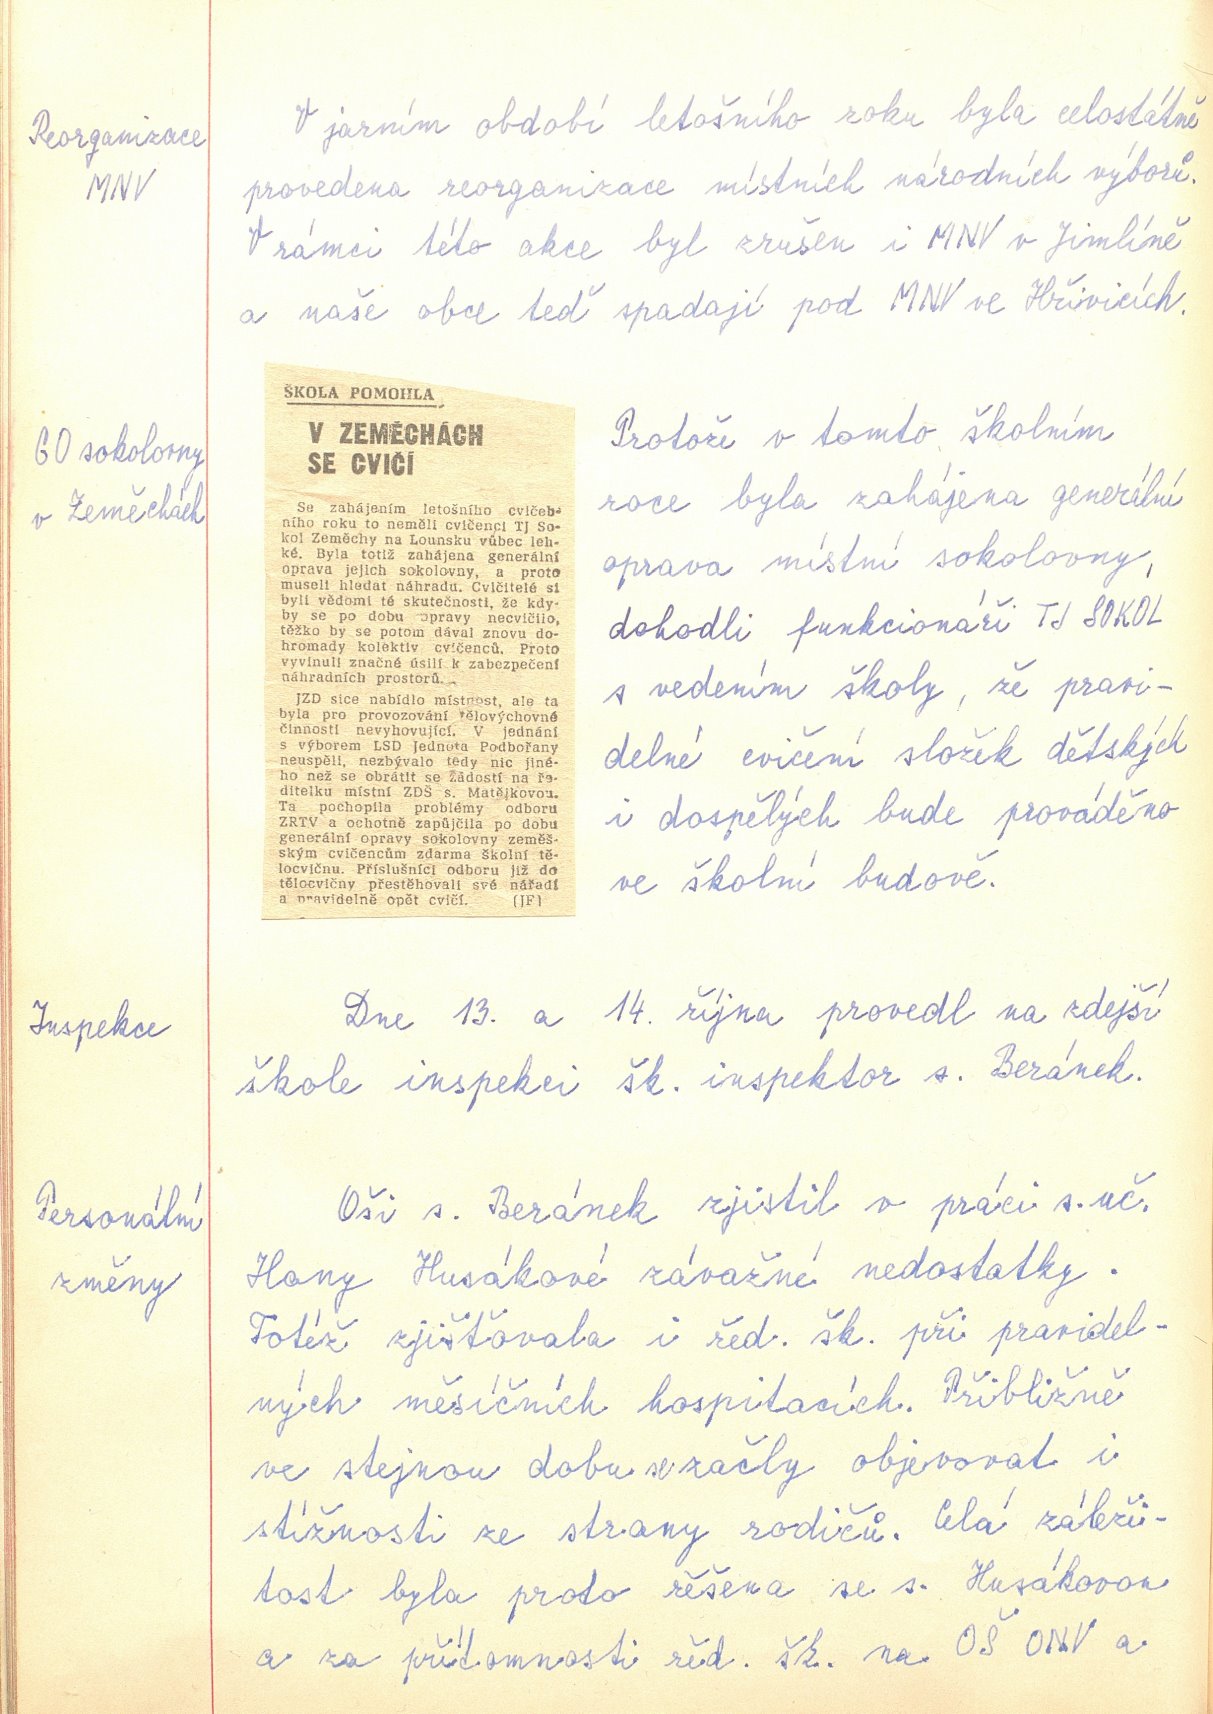 Reorganizace
MNV
V jarním období letošního roku byla celostátně
provedena reorganizace místních národních výborů.
V rámci této akce byl zrušen i MNV v Jimlíně
a naše obce teď spadají pod MNV ve Hřivicích.
GO sokolovny
v Zeměchách
ŠKOLA POMOHLA
V ZEMĚCHÁCH
SE CVIČÍ
Se zahájením letošního cvičeb-
ního roku to neměli cvičenci TJ So-
kol Zeměchy na Lounsku vůbec leh-
ké. Byla totiž zahájena generální
oprava jejich sokolovny, a proto
museli hledat náhradu. Cvičitelé si
byli vědomi té skutečnosti, že kdy-
by se po dobu opravy necvičilo,
těžko by se potom dával znovu do-
hromady kolektiv cvičenců. Proto
vyvinuli značné úsilí k zabezpečení
náhradních prostorů.
JZD sice nabídlo místnost, ale ta
byla pro provozování tělovýchovné
činnosti nevyhovující. V jednání
s výborem LSD Jednota Podbořany
neuspěli, nezbývalo tedy nic jiné-
ho než se obrátit se žádostí na ře-
ditelku místní ZDŠ s. Matějkovou.
Ta pochopila problémy odboru
ZRTV a ochotně zapůjčila po dobu
generální opravy sokolovny zeměš-
ským cvičencům zdarma školní tě-
locvičnu. Příslušníci odboru již do
tělocvičny přestěhovali své nářadí
a pravidelně opět cvičí. (JF)
Protože v tomto školním
roce byla zahájena generální
oprava místní sokolovny,
dohodli funkcionáři TJ SOKOL
s vedením školy, že pravi-
delné cvičení složek dětských
i dospělých bude prováděno
ve školní budově.
Inspekce
Dne 13. a 14. října provedl na zdejší
škole inspekci šk. inspektor s. Beránek.
Personální
změny
Oši s. Beránek zjistil v práci s. uč.
Hany Husákové závažné nedostatky.
Totéž zjišťovala i řed. šk. při pravidel-
ných měsíčních hospitacích. Přibližně
ve stejnou dobu se začly objevovat i
stížnosti ze strany rodičů. Celá záleži-
tost byla proto řešena se s. Husákovou
a za přítomnosti řed. šk. na OŠ ONV a